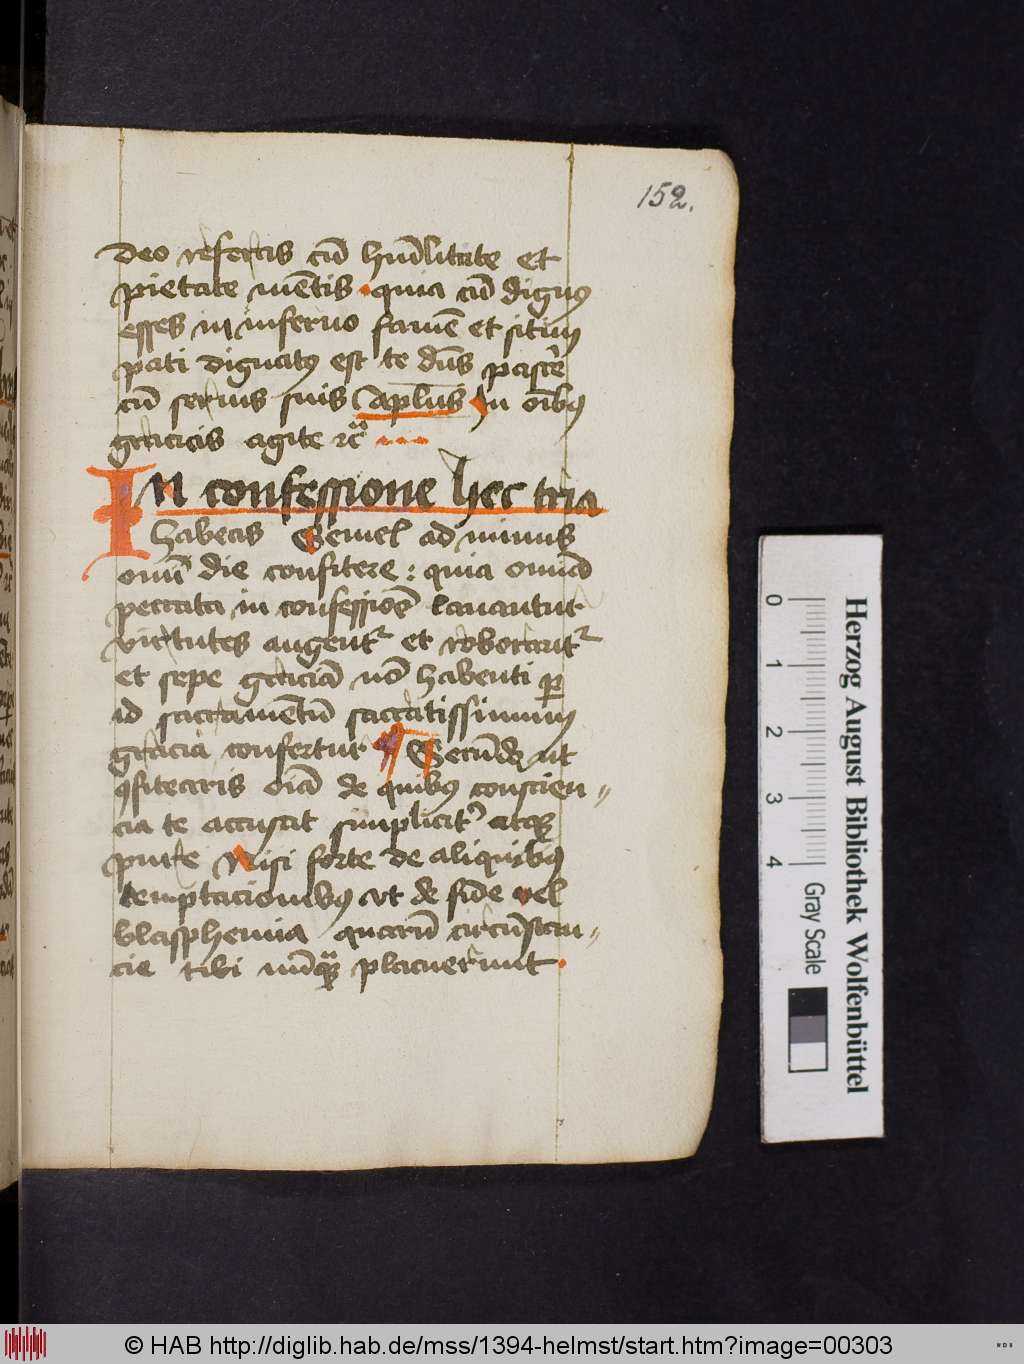 152.
deo referas cū hūilitate et
pietate mētis quia cū dignus
esses in inferno famē et sitim
pati dignatus est te dns pascere
cū seruis suis Aplis In oībus
gracias agite rc
In confessione hec tria
habeas Semel ad minus
omni die confitere : quia omnia
peccata in confessiōe lauantur
virtutes augentur et roborantur
et sepe graciā nō habenti per
id sacramentū sacratissimum
gracia confertur Secundo ut
9fitearis oīa de quibus conscien
cia te accusat simpliciter atque
pure Nisi forte de aliquibus
temptacionibus vt de fide vel
blasphemia quarū circūstan
cie tibi nūquam placuerunt
Herzog August Bibliothek Wolfenbüttel
Gray Scale
0 1 2 3 4
© HAB http://diglib.hab.de/mss/1394-helmst/start.htm?image=00303